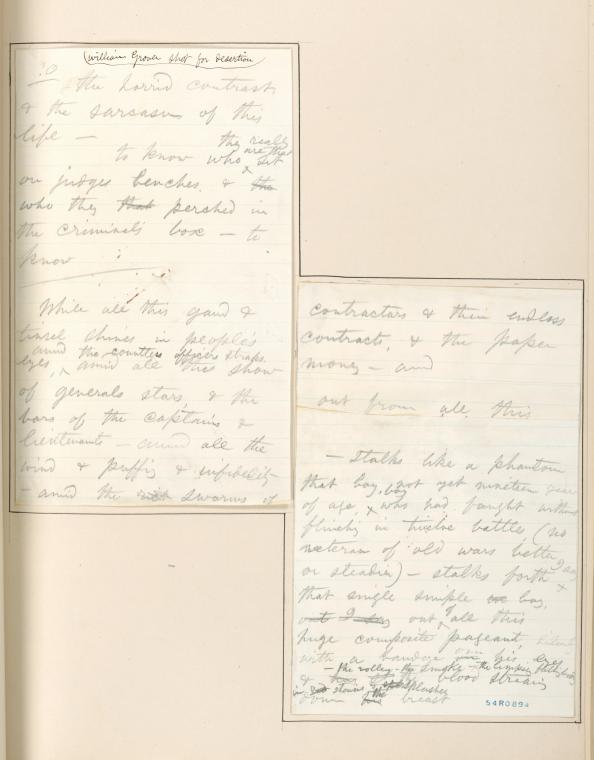 (William Grover shot for desertion
:O the horrid contrast
& the sarcasm of this
life —
they really
are that
to know who sit
on judges benches, & the
who they that perched in
the criminal's box — to
know
While all this gaud &
tinsel shines in people's
amid the countless officers straps
eyes, amid all this show
of generals stars, & the
bars of the captains &
lieutenants — amid all the
wind & puffing & infidelity
— amid the swarms of
contractors & their endless
contracts, & the paper
money — and
out from all this
— Stalks like a phantom
that boy, not yet nineteen years
boy
of age, who had fought without
flinching in twelve battles, (no
veteran of old wars better
I say
or steadier) — stalks forth
that single simple boy,
out I say out of all this
huge composite pageant, silently
with a bandage over his eyes
— the volley — the smoke — the limpsey falling body
& blood streaming
in stains & splashes
down the breast
54R0894